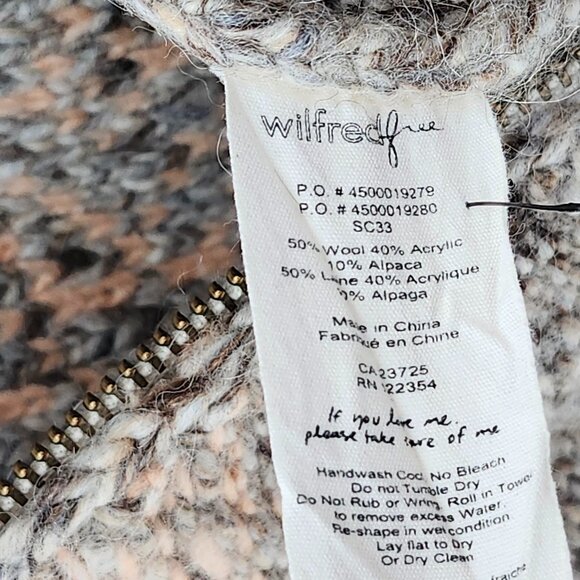 wilfred free
P.O. # 4500019279
P.O. # 4500019280
SC33
50% Wool 40% Acrylic
10% Alpaca
50% Laine 40% Acrylique
10% Alpaga
Made in China
Fabriqué en Chine
CA 23725
RN 122354
If you love me,
please take care of me
Handwash Cool No Bleach
Do not Tumble Dry
Do Not Rub or Wring, Roll in Towel
to remove excess Water.
Re-shape in wet condition
Lay flat to Dry
Or Dry Clean
fraiche